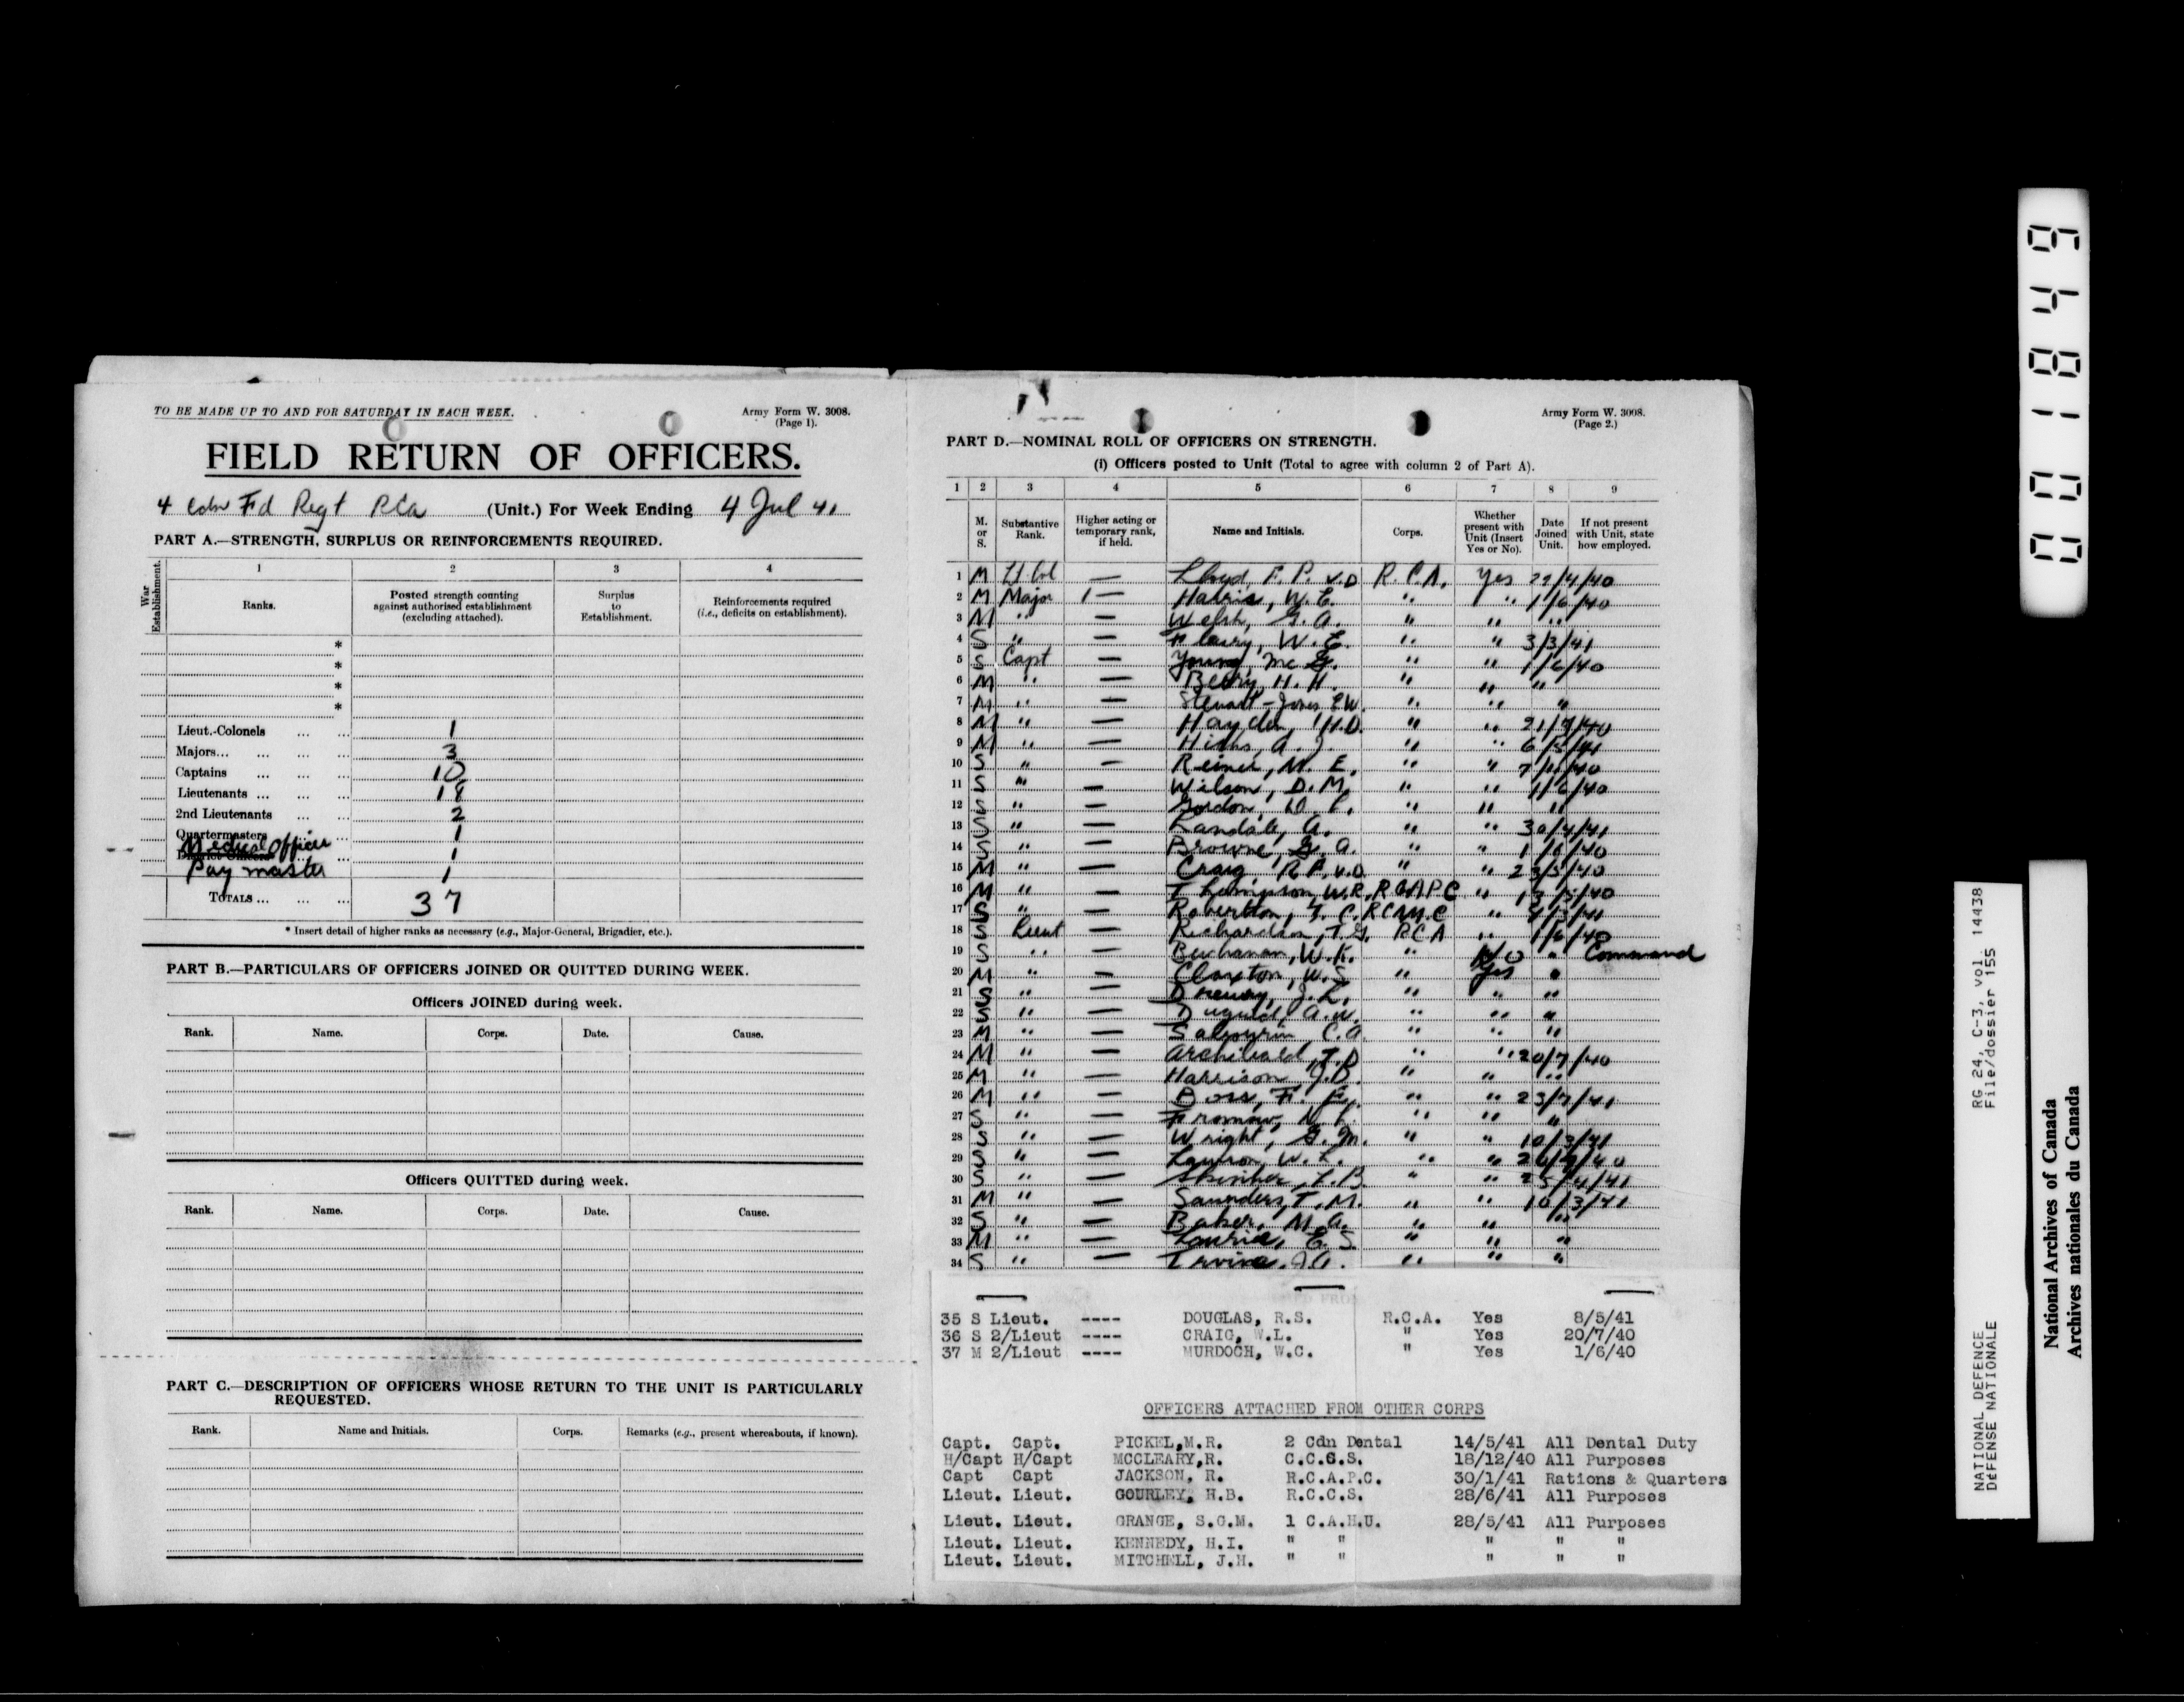 TO BE MADE UP TO AND FOR SATURDAY IN EACH WEEK.
Army Form W. 3008.
(Page 1).
FIELD RETURN OF OFFICERS.
4 Cdn Fd Regt RCA (Unit.) For Week Ending 4 Jul 41
PART A.—STRENGTH, SURPLUS OR REINFORCEMENTS REQUIRED.
War Establishment.
1 2 3 4
Ranks. Posted strength counting against authorised establishment (excluding attached). Surplus to Establishment. Reinforcements required (i.e., deficits on establishment).
*
*
*
*
Lieut.-Colonels ... ... 1
Majors... ... ... ... 3
Captains ... ... ... 10
Lieutenants ... ... ... 18
2nd Lieutenants ... ... 2
Quartermasters ... 1
Medical Officer 1
Pay master 1
TOTALS ... ... ... 37
* Insert detail of higher ranks as necessary (e.g., Major-General, Brigadier, etc.).
PART B.—PARTICULARS OF OFFICERS JOINED OR QUITTED DURING WEEK.
Officers JOINED during week.
Rank. Name. Corps. Date. Cause.
Officers QUITTED during week.
Rank. Name. Corps. Date. Cause.
PART C.—DESCRIPTION OF OFFICERS WHOSE RETURN TO THE UNIT IS PARTICULARLY
REQUESTED.
Rank. Name and Initials. Corps. Remarks (e.g., present whereabouts, if known).
Army Form W. 3008.
(Page 2.)
PART D.—NOMINAL ROLL OF OFFICERS ON STRENGTH.
(i) Officers posted to Unit (Total to agree with column 2 of Part A).
1 2 3 4 5 6 7 8 9
M. or S. Substantive Rank. Higher acting or temporary rank, if held. Name and Initials. Corps. Whether present with Unit (Insert Yes or No). Date Joined Unit. If not present with Unit, state how employed.
1 M Lt Col — Lloyd, F. P. V.D R.C.A. Yes 22/4/40
2 M Major — Harris, W.E. " " 1/6/40
3 M " — Welsh, G. A. " " "
4 S " — Fleury, W. E. " " 3/3/41
5 S Capt — Young, Mc G. " " 1/6/40
6 M " — Berry, H. H. " " "
7 M " — Stewart-Jones E.W. " " "
8 M " — Hayden, H.D. " " 21/7/40
9 M " — A. J. " " 6/5/41
10 S " — M. E. " " 7/11/40
11 S " — Wilson, D. M. " " 1/6/40
12 S " — Gordon, " " "
13 S " — Randall, A. " " 30/4/41
14 S " — Browne, G. A. " " 1/6/40
15 M " — Craig, R P. V.D. " " 23/5/40
16 M " — Thompson, W.R. RCAPC " /40
17 S " — Robertson, C. RCAMC " /41
18 S Lieut — Richardson, T.G. RCA " 1/6/40
19 S " — Buchanan, W. K. " No " Command
20 M " — Claxton, W.S. " Yes "
21 S " — Drewry, J. L. " " "
22 S " — Duguid, A. W. " " "
23 M " — C. A. " " "
24 M " — Archibald, T. D " " 20/7/40
25 M " — Harrison, J.D. " " "
26 M " — Ross, F. " " 23/7/41
27 S " — Fromow, " " "
28 S " — Wright, G. M. " " 10/3/41
29 S " — Lawson, W. L. " " /40
30 S " — Skinner, F. B. " " 25/4/41
31 M " — Saunders, T. M. " " 10/3/41
32 S " — Baker, M. A. " " "
33 M " — Laurie, E. S. " " "
34 S " — Irvine, J.A. " " "
35 S Lieut. ---- DOUGLAS, R.S. R.C.A. Yes 8/5/41
36 S 2/Lieut ---- CRAIG, W.L. " Yes 20/7/40
37 M 2/Lieut ---- MURDOCH, W.C. " Yes 1/6/40
OFFICERS ATTACHED FROM OTHER CORPS
Capt. Capt. PICKEL,M.R. 2 Cdn Dental 14/5/41 All Dental Duty
H/Capt H/Capt MCCLEARY,R. C.C.S. 18/12/40 All Purposes
Capt Capt JACKSON, R. R.C.A.P.C. 30/1/41 Rations & Quarters
Lieut. Lieut. GOURLEY, H.B. R.C.C.S. 28/6/41 All Purposes
Lieut. Lieut. GRANGE, S.G.M. 1 C.A.H.U. 28/5/41 All Purposes
Lieut. Lieut. KENNEDY, H.I. " " " " "
Lieut. Lieut. MITCHELL, J.H. " " " " "
001849
NATIONAL DEFENCE RG 24, C-3, vol. 14438
DÉFENSE NATIONALE File/dossier 155
National Archives of Canada
Archives nationales du Canada